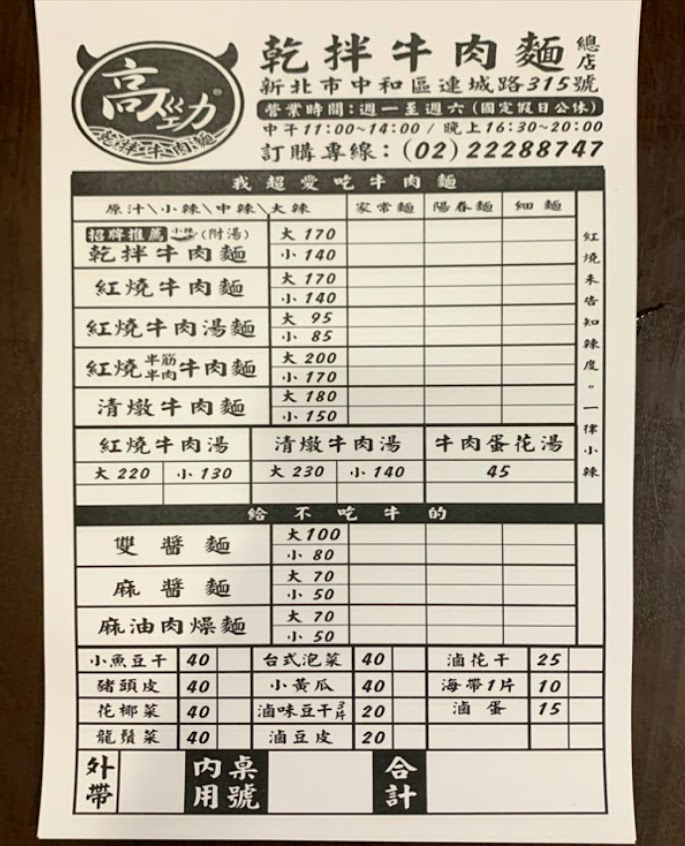 高㽏力®
乾拌牛肉麵
乾拌牛肉麵 總店
新北市中和區連城路315號
營業時間:週一至週六(國定假日公休)
中午11:00~14:00 / 晚上16:30~20:00
訂購專線:(02)22288747
我超愛吃牛肉麵
原汁\小辣\中辣\大辣 家常麵 陽春麵 細麵
招牌推薦 小辣 (附湯) 大 170
乾拌牛肉麵 小 140
紅燒牛肉麵 大 170
小 140
紅燒牛肉湯麵 大 95
小 85
紅燒半筋半肉牛肉麵 大 200
小 170
清燉牛肉麵 大 180
小 150
紅燒未告知辣度。一律小辣
紅燒牛肉湯 清燉牛肉湯 牛肉蛋花湯
大 220 小 130 大 230 小 140 45
給不吃牛的
雙醬麵 大 100
小 80
麻醬麵 大 70
小 50
麻油肉燥麵 大 70
小 50
小魚豆干 40 台式泡菜 40 滷花干 25
豬頭皮 40 小黃瓜 40 海帶1片 10
花椰菜 40 滷味豆干3片 20 滷蛋 15
龍鬚菜 40 滷豆皮 20
外帶 內用桌號 合計